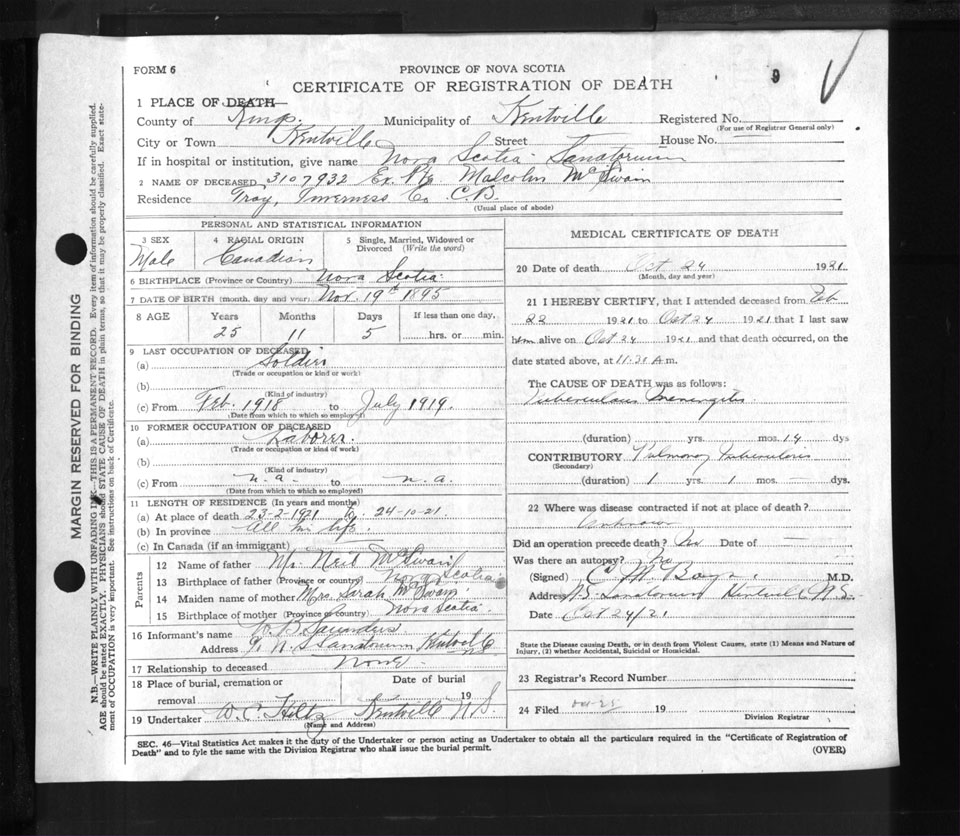 FORM 6
PROVINCE OF NOVA SCOTIA
9
CERTIFICATE OF REGISTRATION OF DEATH
1 PLACE OF DEATH—
County of Kings. Municipality of Kentville Registered No.
(For use of Registrar General only)
City or Town Kentville Street House No. —
If in hospital or institution, give name Nova Scotia Sanatorium
2 NAME OF DECEASED 3107932 Ex. Pte. Malcolm McSwain
Residence Troy, Inverness Co. C.B.
(Usual place of abode)
PERSONAL AND STATISTICAL INFORMATION
3 SEX 4 RACIAL ORIGIN 5 Single, Married, Widowed or Divorced (Write the word)
Male Canadian
6 BIRTHPLACE (Province or Country) Nova Scotia
7 DATE OF BIRTH (month, day and year) Nov. 19th 1895
8 AGE Years Months Days If less than one day,
25 11 5 hrs. or min.
9 LAST OCCUPATION OF DECEASED
(a) Soldier
(Trade or occupation or kind or work)
(b)
(Kind of industry)
(c) From Feb. 1918 to July 1919.
(Date from which to which so employed)
10 FORMER OCCUPATION OF DECEASED
(a) Laborer.
(Trade or occupation or kind of work)
(b)
(Kind of industry)
(c) From n.a. to n.a.
(Date from which to which so employed)
11 LENGTH OF RESIDENCE (In years and months)
(a) At place of death 23-2-1921 to 24-10-21.
(b) In province All his life.
(c) In Canada (if an immigrant)
Parents
12 Name of father Mr. Neil McSwain
13 Birthplace of father (Province or country) Nova Scotia
14 Maiden name of mother Mrs. Sarah McSwain
15 Birthplace of mother (Province or country) Nova Scotia.
16 Informant's name B. Saunders
Address N. S. Sanatorium Kentville
17 Relationship to deceased None.
18 Place of burial, cremation or Date of burial
removal 19
19 Undertaker W. C. Hiltz Kentville N.S.
(Name and Address)
MEDICAL CERTIFICATE OF DEATH
20 Date of death Oct 24 1921
(Month, day and year)
21 I HEREBY CERTIFY, that I attended deceased from Feb
22 1921 to Oct 24 1921 that I last saw
him alive on Oct 24 1921 and that death occurred, on the
date stated above, at 11:30 A m.
The CAUSE OF DEATH was as follows:
Tuberculous Meningitis
(duration) yrs. mos. 14 dys
CONTRIBUTORY Pulmonary Tuberculosis
(Secondary)
(duration) 1 yrs. 1 mos. — dys.
22 Where was disease contracted if not at place of death?
Unknown
Did an operation precede death? No Date of —
Was there an autopsy? No
(Signed) C. M. M.D.
Address N.S. Sanatorium Kentville N.S.
Date Oct 24/21
State the Disease causing Death, or in death from Violent Causes, state (1) Means and Nature of
Injury, (2) whether Accidental, Suicidal or Homicidal.
23 Registrar's Record Number
24 Filed 19
Division Registrar
SEC. 46—Vital Statistics Act makes it the duty of the Undertaker or person acting as Undertaker to obtain all the particulars required in the "Certificate of Registration of
Death" and to fyle the same with the Division Registrar who shall issue the burial permit.
(OVER)
MARGIN RESERVED FOR BINDING
N.B.—WRITE PLAINLY WITH UNFADING INK—THIS IS A PERMANENT RECORD. Every item of information should be carefully supplied.
AGE should be stated EXACTLY. PHYSICIANS should STATE CAUSE OF DEATH in plain terms, so that it may be properly classified. Exact state-
ment of OCCUPATION is very important. See instructions on back of Certificate.